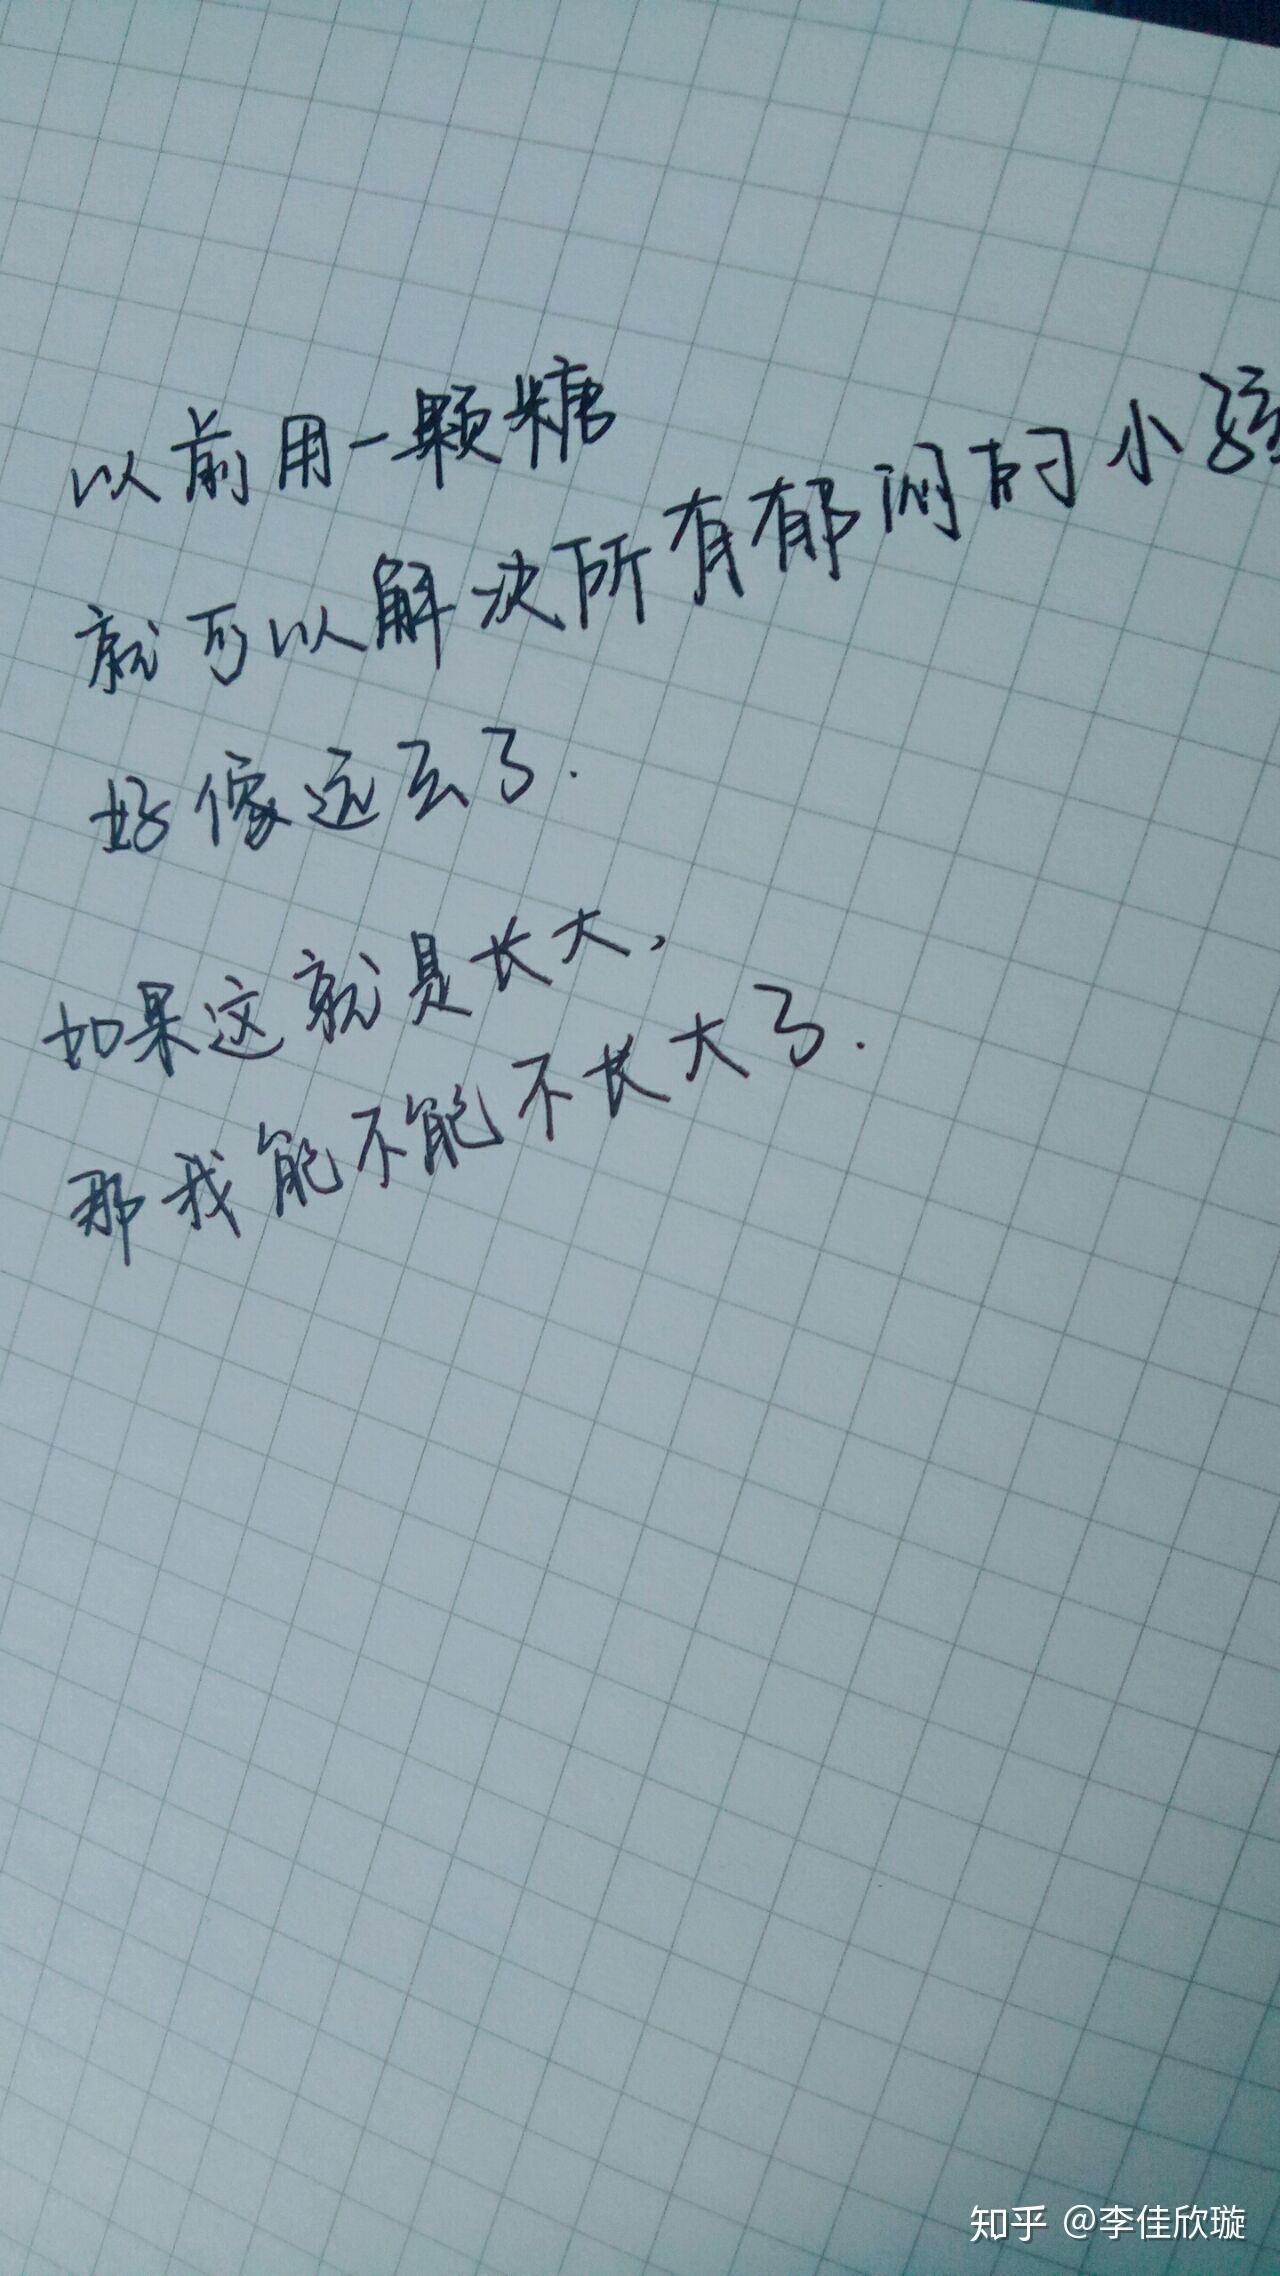 以前用一颗糖
就可以解决所有郁闷的小孩
好像远去了.
如果这就是长大,
那我能不能不长大了.
知乎 @李佳欣璇